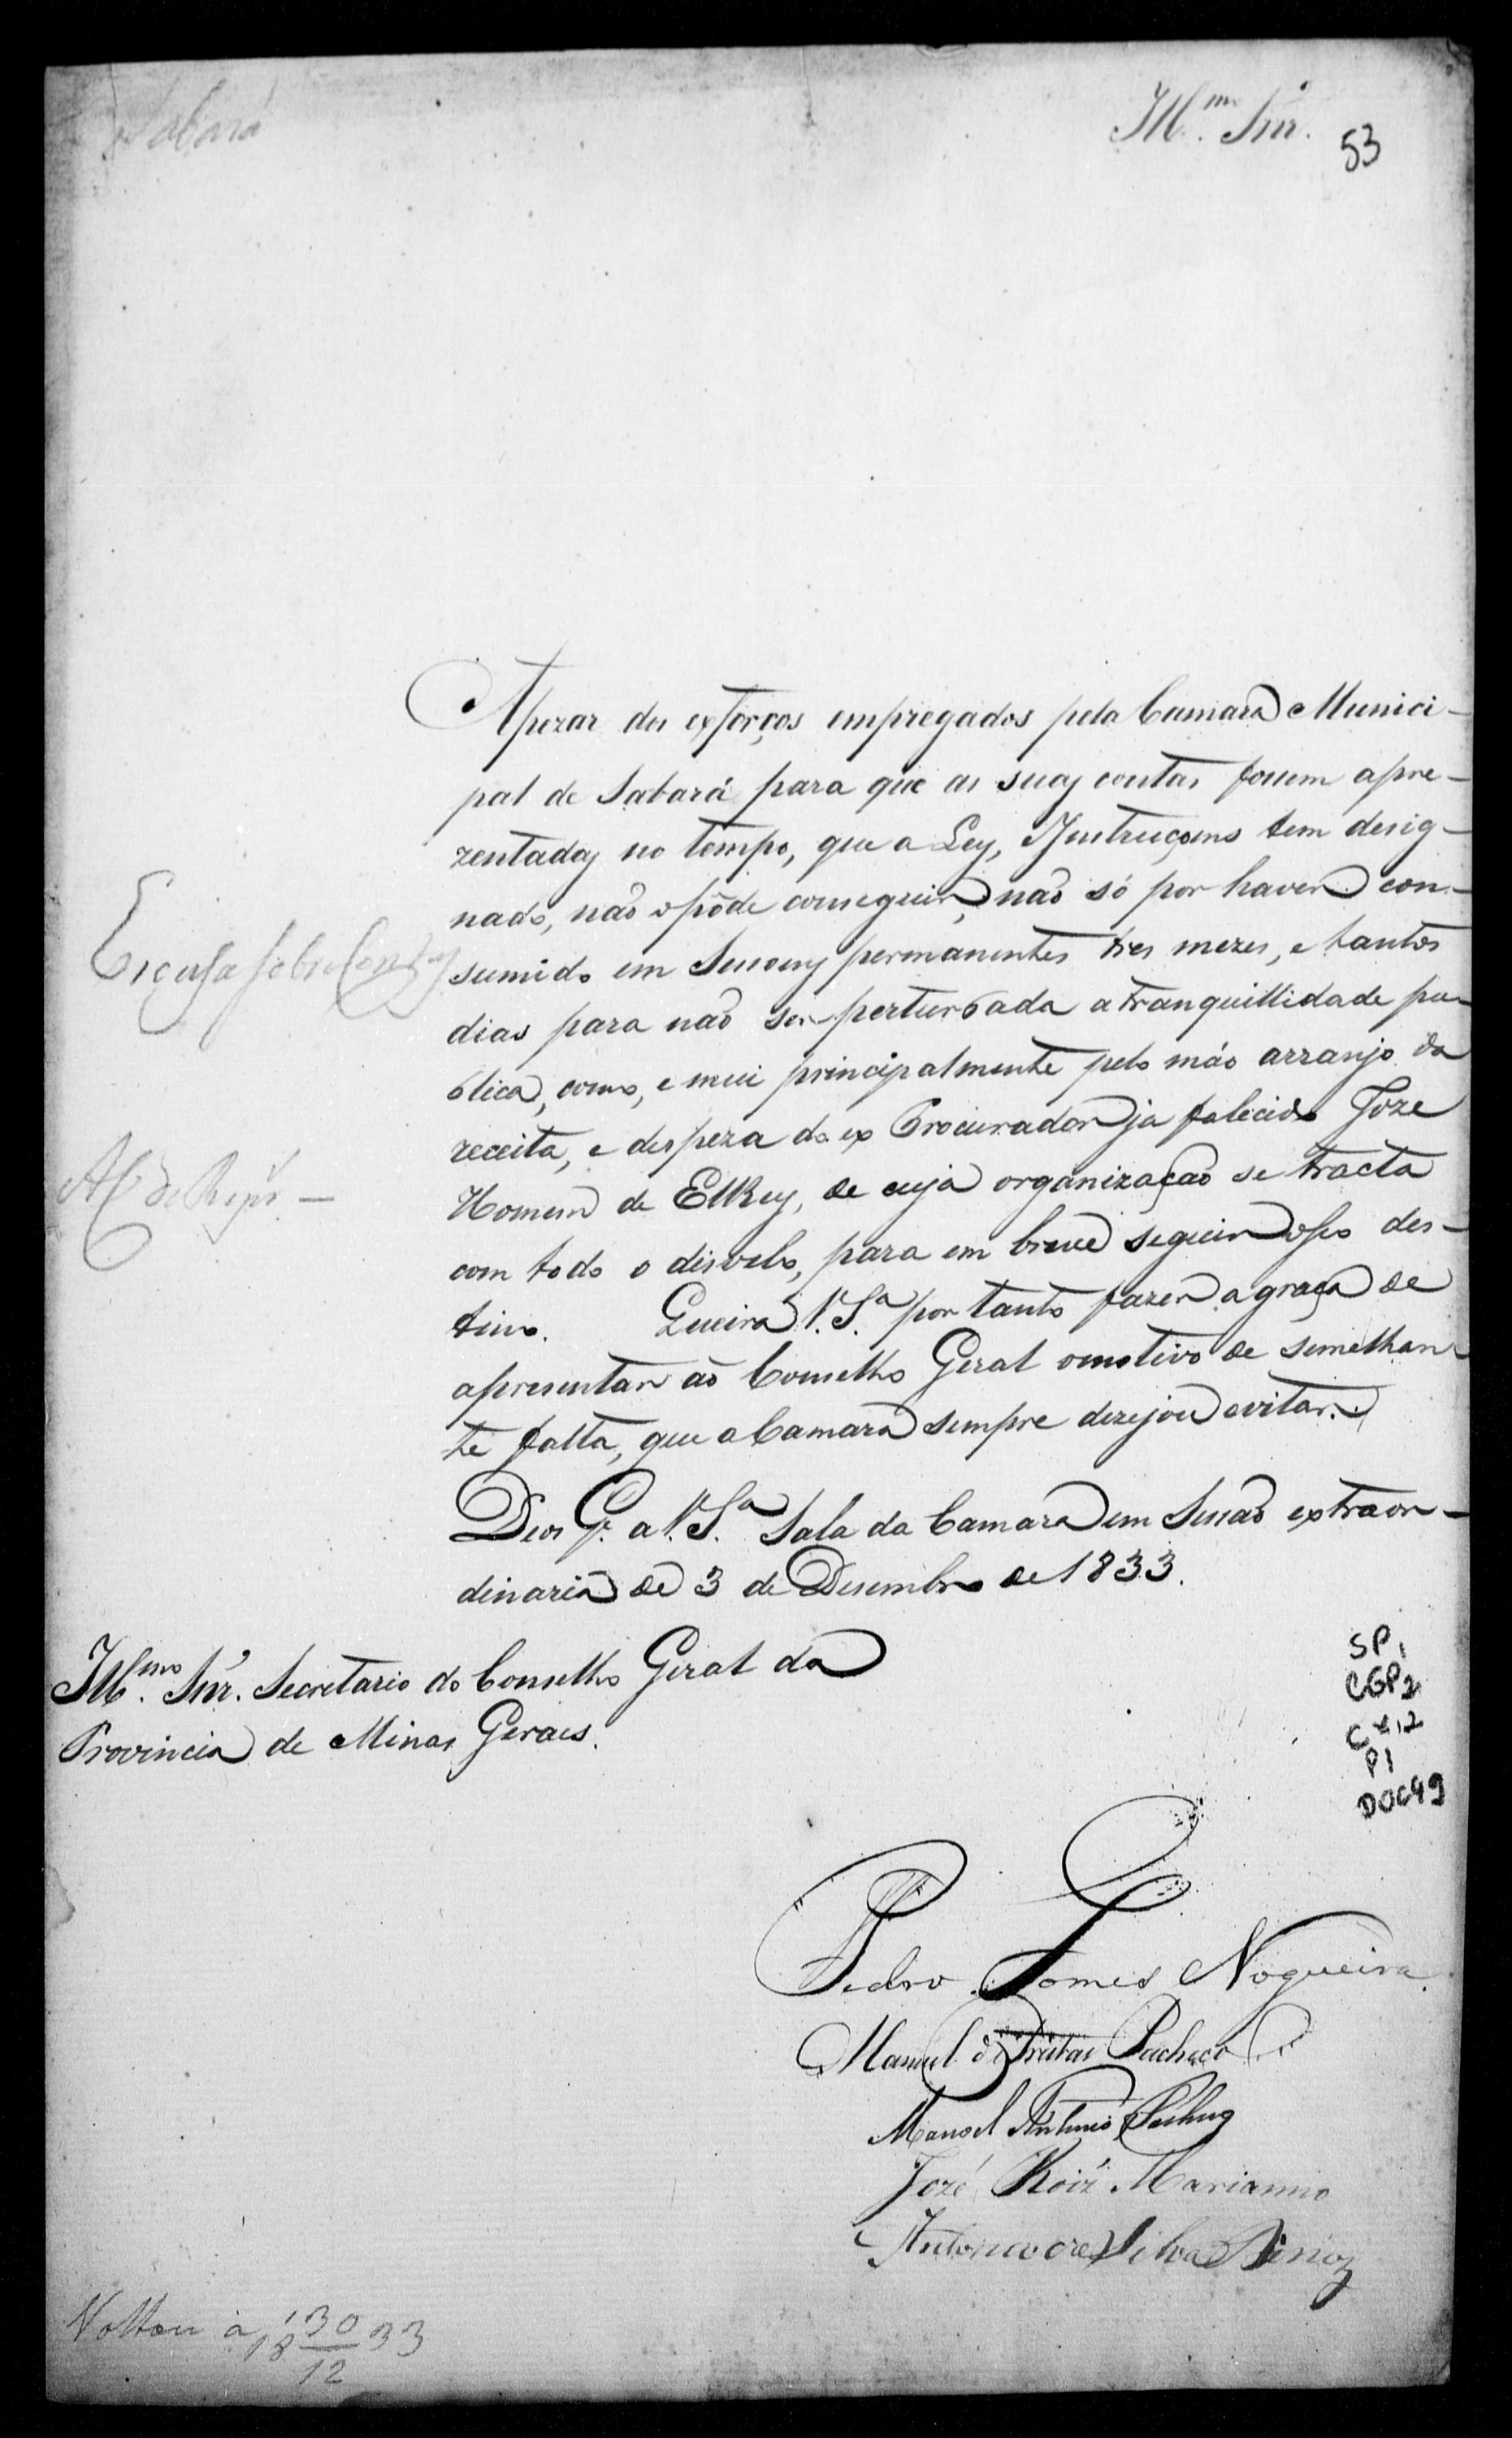 Sabará
Ill.mo Snr.
53
Apezar dos exforços empregados pela Camara Munici-
pal de Sabará para que as suas contas fossem apre-
zentadas no tempo, que a Ley, Instrucçoens tem desig-
nado, não o pôde conseguir, não só por haver con-
sumido em Sessoens permanentes tres mezes, e tantos
dias para não ser perturbada a tranquillidade pu-
blica, como, e mui principalmente pelo máo arranjo da
receita, e despeza do ex Procurador ja falecido Joze
Homem de ElRey, de cuja organização se tracta
com todo o disvelo, para em breve seguir o seo des-
tino. Queira V. S.a por tanto fazer a graça de
apresentar ao Conselho Geral o motivo de semelhan-
te falta, que a Camara sempre dezejou evitar.
Deos G.e a V. S.a Sala da Camara em Sessão extraor-
dinaria de 3 de Desembro de 1833.
Escusa sobre Contas
Ill.mo Snr. Secretario do Conselho Geral da
Provincia de Minas Geraes.
SP1
CGP2
P1
DOC49
Pedro Gomes Nogueira
Manuel de Freitas Pacheco
Manoel Antonio Pacheco
Jozé Roiz Marianno
Antonio da Silva
Voltou a 18 30/12 33